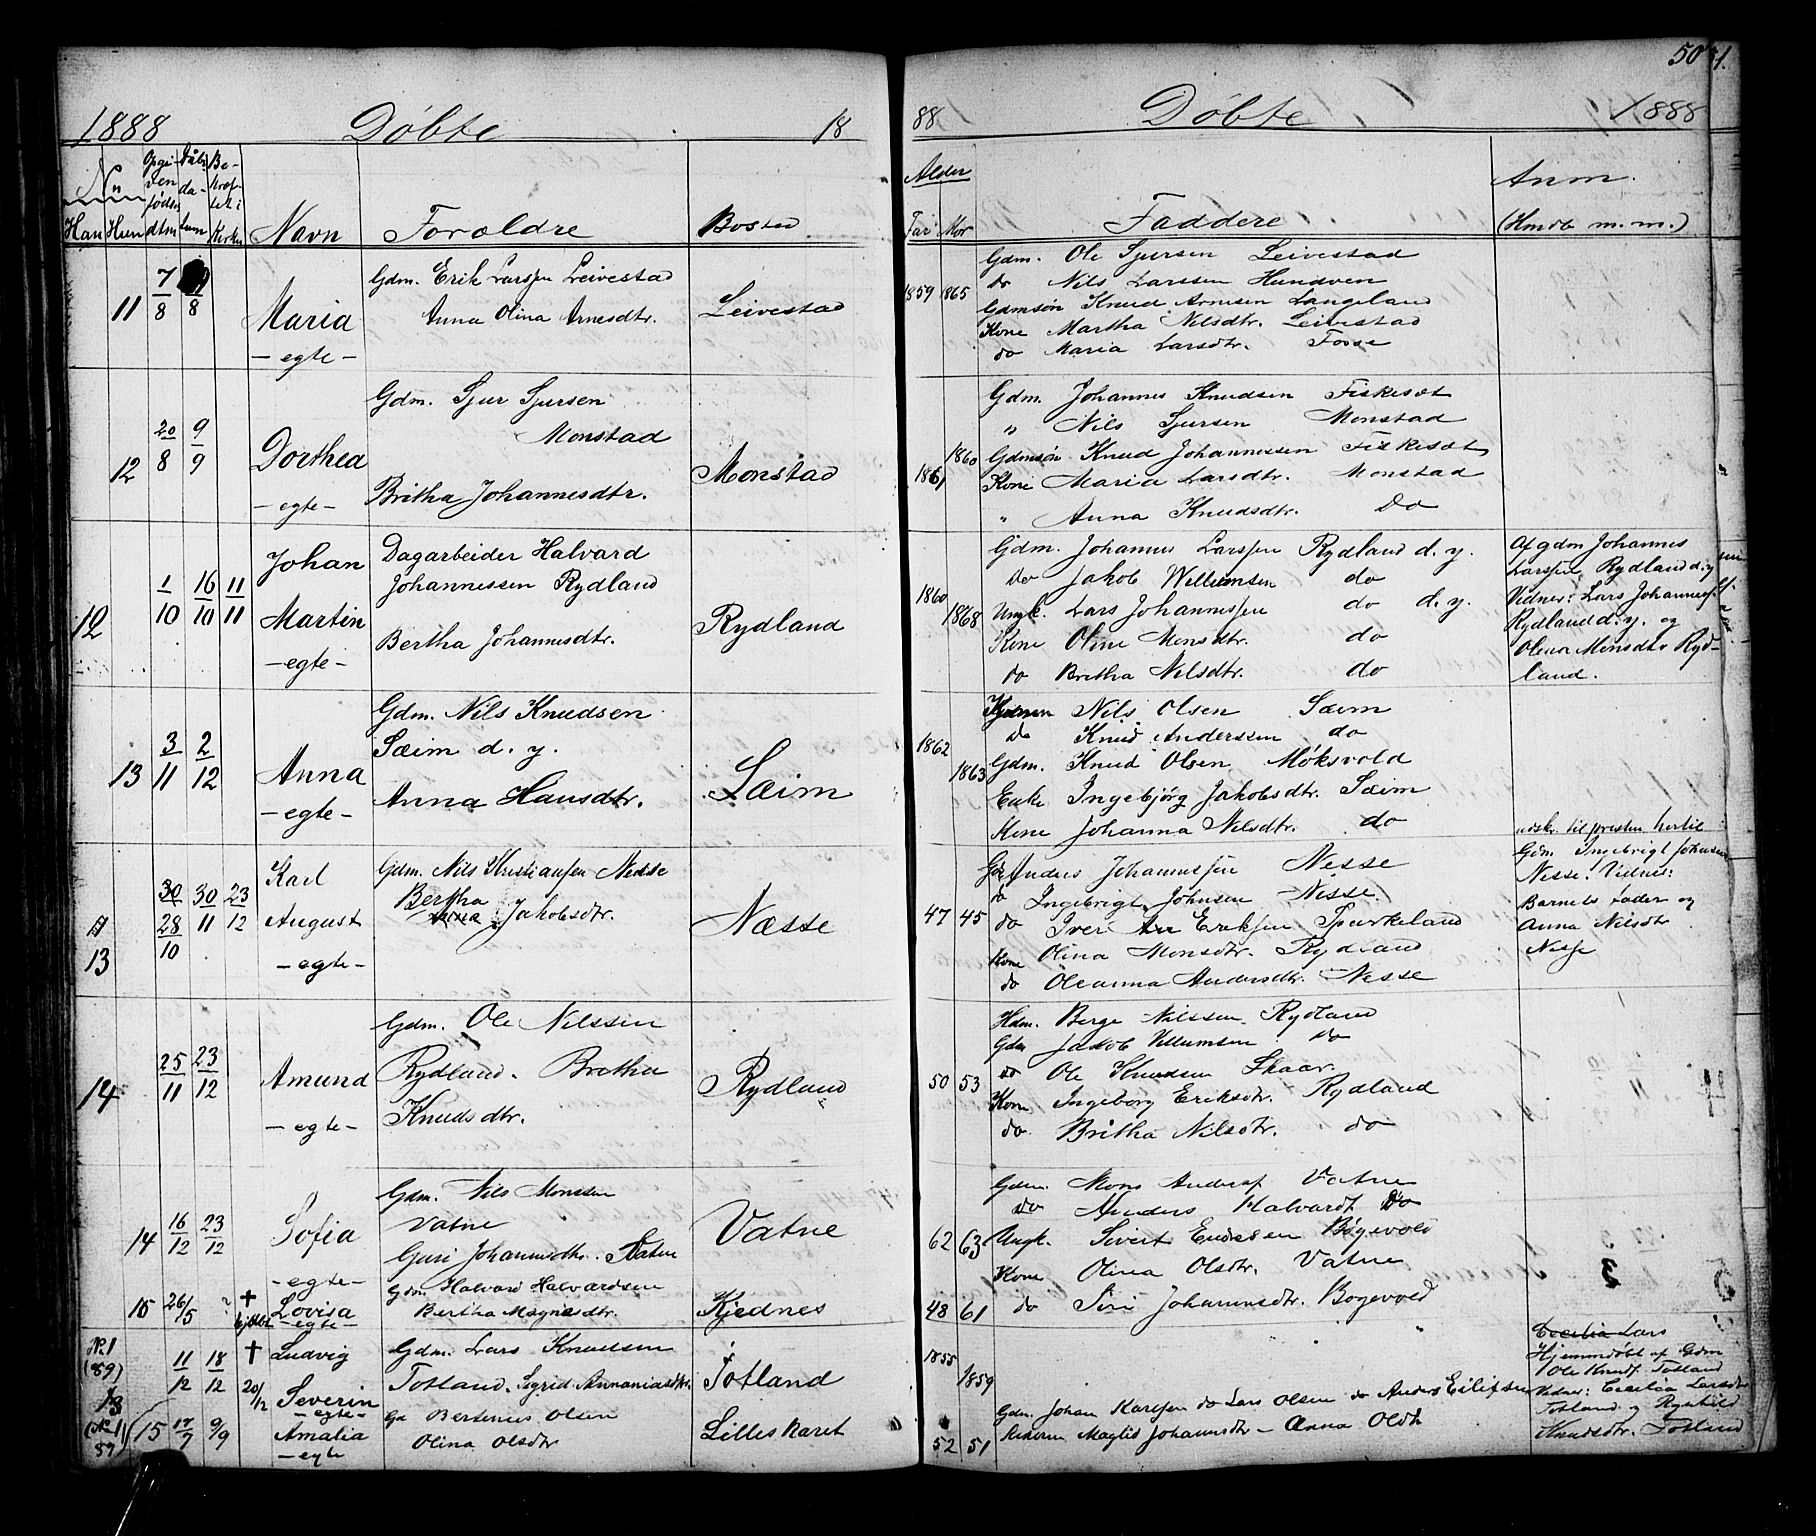 50
1888 Döbte 18
Nr
Opgi-
ven
føds
dtm
Dåbs
da-
tum
Be-
kræf-
tet i
Kirken
Han Hun Navn Forældre Bosted
11 7/8 /8 Maria
- egte -
Gdm. Erik Larssen Leivestad
Anna Olina Arnesdtr.
Leivestad
12 20/8 9/9 Dorthea
- egte -
Gdm. Sjur Sjursen
Monstad
Britha Johannesdtr.
Monstad
12 1/10 16/10 11/11 Johan
Martin
- egte -
Dagarbeider Halvard
Johannessen Rydland
Bertha Johannesdtr.
Rydland
13 3/11 2/12 Anna
- egte -
Gdm. Nils Knudsen
Sæim d. y.
Anna Hansdtr.
Sæim
13 28/10 30/11 23/12 Karl
August
- egte -
Gdm. Nils Kristiansen Nesse
Bertha Jakobsdtr.
Næsse
14 25/11 23/12 Amund
- egte -
Gdm. Ole Nilssen
Rydland. Bretha
Knudsdtr.
Rydland
14 16/12 23/12 Sofia
- egte -
Gdm. Nils Monsen
Vatne
Guri Johannesdtr.
Vatne
15 26/5 ? † Lovisa
- egte -
Gdm. Halvard Halvardsen
Bertha Magnesdtr.
Kjednes
Nr. 1
(89)
13 11/12 18/12 20/12 † Ludvig
Severin
- egte -
Gdm. Lars Knudsen
Totland. Sigrid Annaniasdtr.
Totland
15 17/7 9/9 Amalia
- egte
Bertenius Olsen
Olina Olsdtr
Lilleskaret
88 Döbte 1888
Alder
Far Mor Faddere
Anm.
(Hmdb m. m.)
1859 1865 Gdm. Ole Sjursen Leivestad
do Nils Larssen Hundven
Gdmsön Knud Arnesen Langeland
Kone Martha Nilsdtr. Leivestad
do Maria Larsdtr. Fosse
1861 1860 Gdm. Johannes Knudsen Fiskesæt
" Nils Sjursen Monstad
Gdmsön Knud Johannessen Fiskesæt
Kone Maria Larsdtr. Monstad
" Anna Knudsdtr. Do
1860 1868 Gdm. Johannes Larssen Rydland d. y.
Do Jakob Willumsen do
Ungk. Lars Johannessen do d. y.
Kone Oline Monsdtr. do
do Britha Nilsdtr. do
Af gdm Johannes
Larssen Rydland d. y
Vidner: Lars Johanness.
Rydland d. y. og
Olina Monsdtr Ryd-
land.
1862 1863 Nils Olsen Sæim
do Knud Anderssen do
Gdm. Knud Olsen Møksvold
Enke Ingebjörg Jakobsdtr. Sæim
Kone Johanna Nilsdtr. do
47 45 Anders Johannessen Nesse
do Ingebrigt Johnsen Nesse.
do Iver Eriksen Spurkeland
Kone Olina Monsdtr. Rydland
do Oleanna Andersdtr. Nesse
udskr. til presten hertil
Gdm. Ingebrigt Johnsen
Nesse: Vidner:
Barnets fader og
Anna Nilsdtr
Nesse
50 53 Hdm. Berge Nilssen Rydland
Gdm Jakob Villumsen do
do Ole Knudsen Skaar
Kone Ingeborg Eriksdtr. Rydland
do. Britha Nilsdtr. do
62 63 Gdm. Mons Anders. Vatne
do Anders Halvards. Do
Ungk. Sivert Endresen Bøgevold
Kone Olina Olsdtr. Vatne
48 61 do Siri Johannesdtr. Bøgevold
1855 1859
Cecilia Lars
Hjemmdöbt af Gdm
Ole Knuds. Totland
Vidner: Cecilia Larsdtr
Totland og
Knudsdtr. Totland
52 51 Gdm. Johan Karlsen do Lars Olsen do Anders Eilifsen
Maglid Johannesdtr - Anna Oldtr